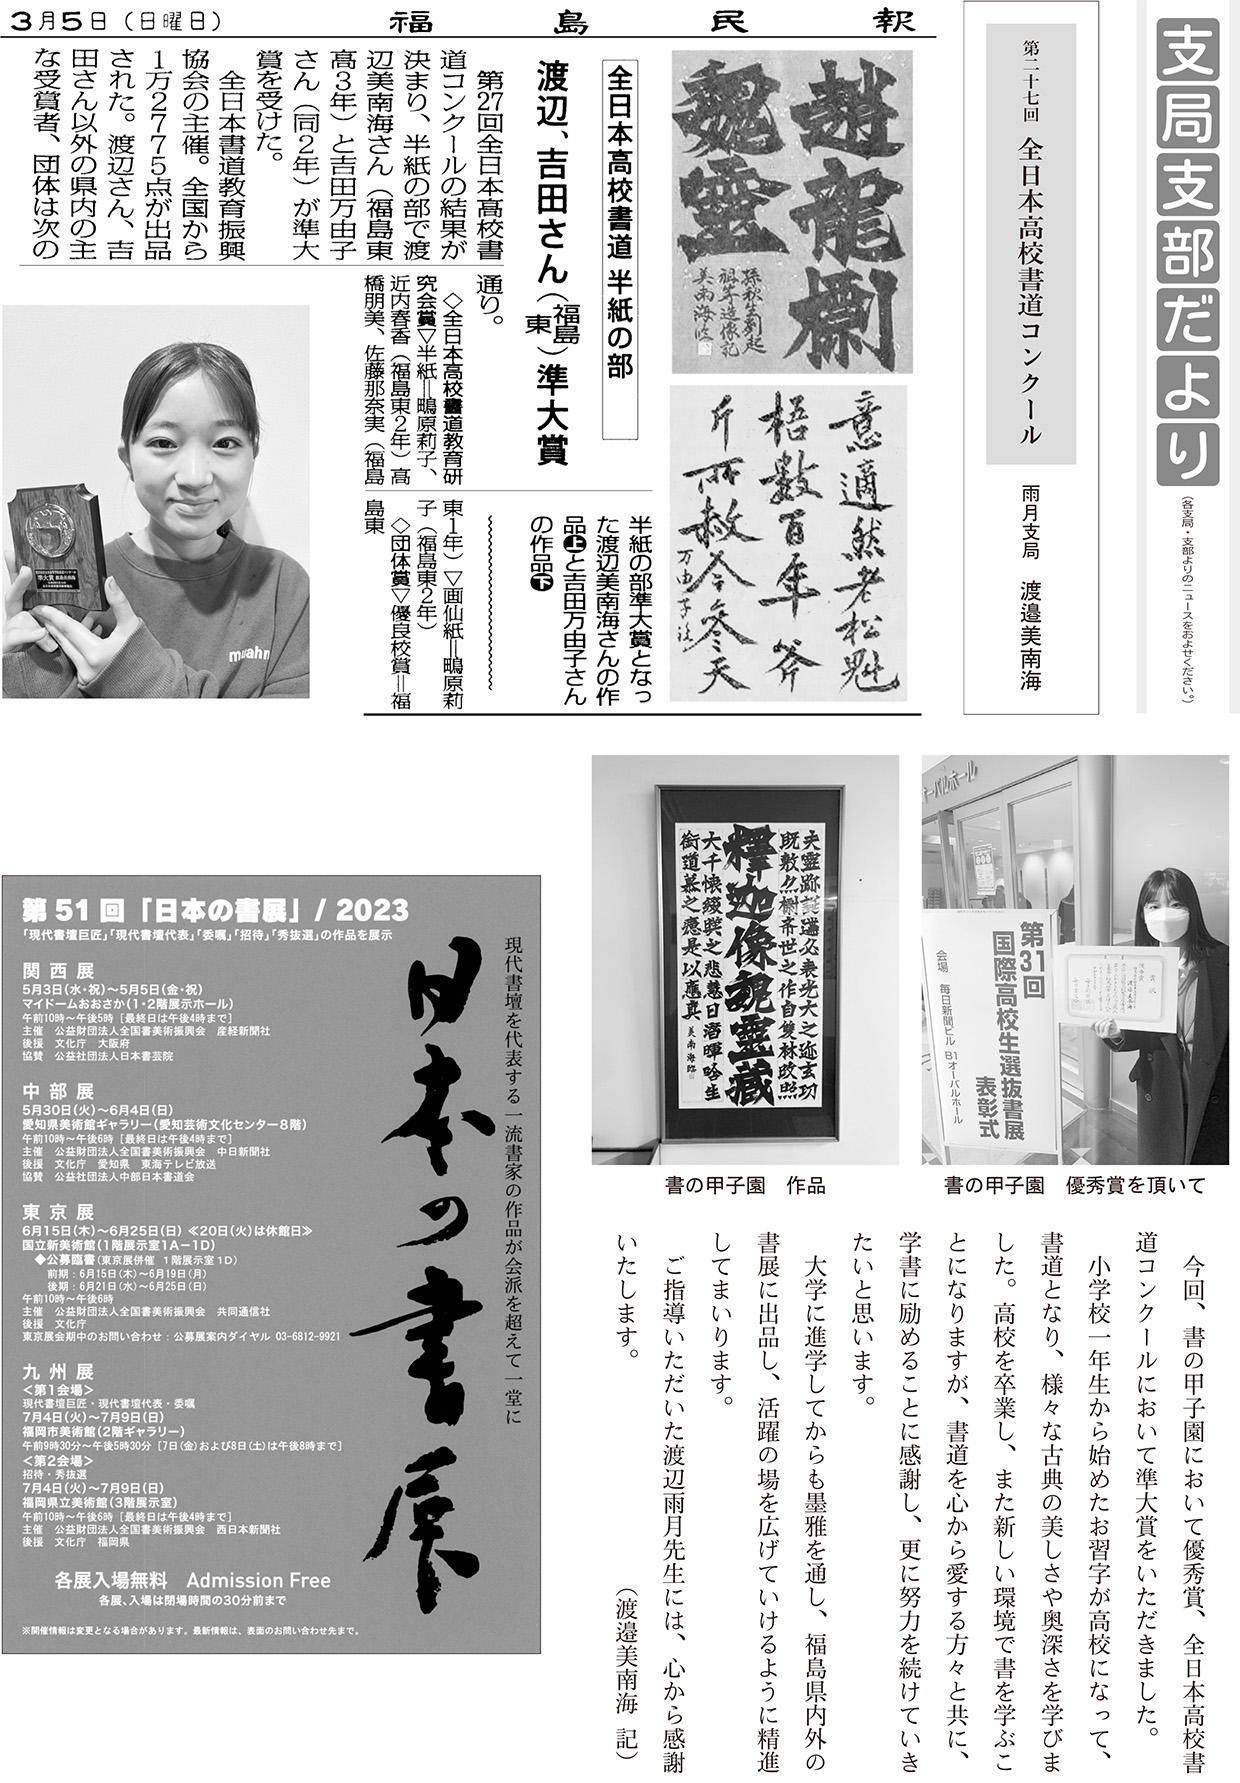 支局支部だより
(各支局・支部よりのニュースをおよせください。)
第二十七回 全日本高校書道コンクール
雨月支局 渡邉美南海
3月5日(日曜日) 福島民報
全日本高校書道 半紙の部
渡辺、吉田さん(福島東)準大賞
第27回全日本高校書
道コンクールの結果が
決まり、半紙の部で渡
辺美南海さん(福島東
高3年)と吉田万由子
さん(同2年)が準大
賞を受けた。
全日本書道教育振興
協会の主催。全国から
1万2775点が出品
された。渡辺さん、吉
田さん以外の県内の主
な受賞者、団体は次の
通り。
◇全日本高校書道教育研
究会賞▽半紙=鴫原莉子、
近内春香(福島東2年)高
橋朋美、佐藤那奈実(福島
東1年)▽画仙紙=鴫原莉
子(福島東2年)
◇団体賞▽優良校賞=福
島東
半紙の部準大賞となっ
た渡辺美南海さんの作
品上と吉田万由子さん
の作品下
意適然老松魁
梧數百年斧
斤所赦今參天
準大賞
muahn
オーバルホール
第31回
国際高校生選抜書展
表彰式
会場 毎日新聞ビル B1オーバルホール
賞状
書の甲子園 作品
書の甲子園 優秀賞を頂いて
今回、書の甲子園において優秀賞、全日本高校書
道コンクールにおいて準大賞をいただきました。
小学校一年生から始めたお習字が高校になって、
書道となり、様々な古典の美しさや奥深さを学びま
した。高校を卒業し、また新しい環境で書を学ぶこ
とになりますが、書道を心から愛する方々と共に、
学書に励めることに感謝し、更に努力を続けていき
たいと思います。
大学に進学してからも墨雅を通し、福島県内外の
書展に出品し、活躍の場を広げていけるように精進
してまいります。
ご指導いただいた渡辺雨月先生には、心から感謝
いたします。
(渡邉美南海 記)
第51回「日本の書展」/ 2023
「現代書壇巨匠」「現代書壇代表」「委嘱」「招待」「秀抜選」の作品を展示
現代書壇を代表する一流書家の作品が会派を超えて一堂に
日本の書展
関西展
5月3日(水・祝)〜5月5日(金・祝)
マイドームおおさか(1・2階展示ホール)
午前10時〜午後5時[最終日は午後4時まで]
主催 公益財団法人全国書美術振興会 産経新聞社
後援 文化庁 大阪府
協賛 公益社団法人日本書芸院
中部展
5月30日(火)〜6月4日(日)
愛知県美術館ギャラリー(愛知芸術文化センター8階)
午前10時〜午後6時[最終日は午後4時まで]
主催 公益財団法人全国書美術振興会 中日新聞社
後援 文化庁 愛知県 東海テレビ放送
協賛 公益社団法人中部日本書道会
東京展
6月15日(木)〜6月25日(日) ≪20日(火)は休館日≫
国立新美術館(1階展示室1A−1D)
◆公募臨書(東京展併催 1階展示室1D)
前期:6月15日(木)〜6月19日(月)
後期:6月21日(水)〜6月25日(日)
午前10時〜午後6時
主催 公益財団法人全国書美術振興会 共同通信社
後援 文化庁
東京展会期中のお問い合わせ:公募展案内ダイヤル 03-6812-9921
九州展
<第1会場>
現代書壇巨匠・現代書壇代表・委嘱
7月4日(火)〜7月9日(日)
福岡市美術館(2階ギャラリー)
午前9時30分〜午後5時30分[7日(金)および8日(土)は午後8時まで]
<第2会場>
招待・秀抜選
7月4日(火)〜7月9日(日)
福岡県立美術館(3階展示室)
午前10時〜午後6時[最終日は午後4時まで]
主催 公益財団法人全国書美術振興会 西日本新聞社
後援 文化庁 福岡県
各展入場無料 Admission Free
各展、入場は閉場時間の30分前まで
※開催情報は変更となる場合があります。最新情報は、表面のお問い合わせ先まで。